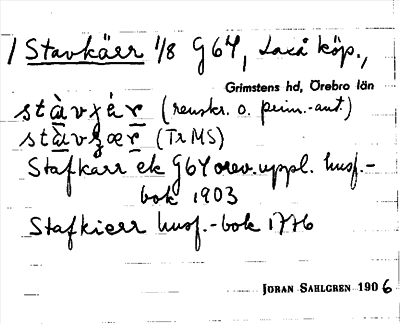 / Stavkärr 1/8 G 64, Laxå köp.,
Grimstens hd, Örebro län
stàvχæ̀r (renskr. o. prim.-ant.)
stàvχær (Tr MS)
Stafkärr ek G64 orev. uppl. husf.-
bok 1903
Stafkierr husf.-bok 1776
JÖRAN SAHLGREN 1906